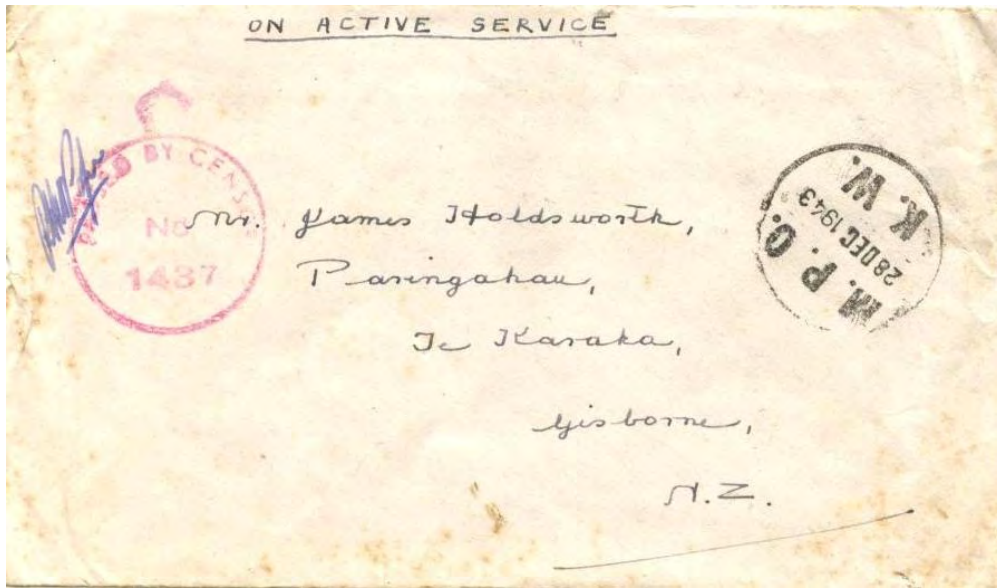 ON ACTIVE SERVICE
PASSED BY CENSOR
No
1437
M.P.O.
28 DEC 1943
K.W.
Mr. James Holdsworth,
Paringahau,
Te Karaka,
Gisborne,
N.Z.